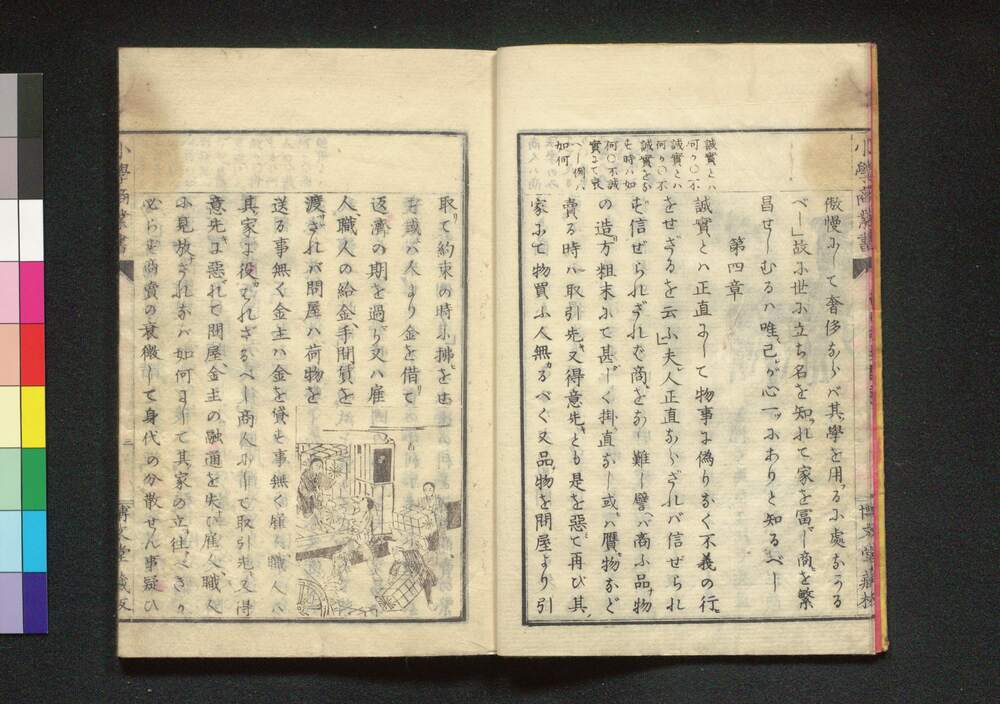 誠實とハ
何ゾ〇不
誠實とハ
何ゾ〇不
誠實をな
す時ハ如
何〇不誠
實にて賣
ベ一個ハ
如何
傲慢にして奢侈ならバ其學を用るに處なかる
べし」故に世に立ち名を知れて家を冨し商を繁
昌せしむるハ唯己が心一ツにありと知るべし
第四章
誠實とハ正直にして物事に偽りなく不義の行
をせざるを云ふ」夫人正直ならざれバ信ぜられ
ず信ぜられざれバ商をなし難し譬バ商ふ品物
の造方粗末にて甚しく掛直なし或ハ贋物など
賣る時ハ取引先又得意先とも是を惡て再び其
家にて物買ふ人無るべく又品物を問屋より引
小學商業書
博文堂藏板
取て約束の時に拂をせ
ず或バ人より金を借て
返濟の期を過り又ハ雇
人職人の給金手間賃を
渡ざれバ問屋ハ荷物を
送る事無く金主ハ金を貸す事無く雇職人ハ
其家に役でれざるべし商人にして取引先又得
意先に惡れて問屋金主の融通を失ひ雇人職人
に見放ざれなバ如何にして其家の立往べきか
必らず商賣の衰微して身代の分散せん事疑ひ
小學商業書
三
博文堂藏板